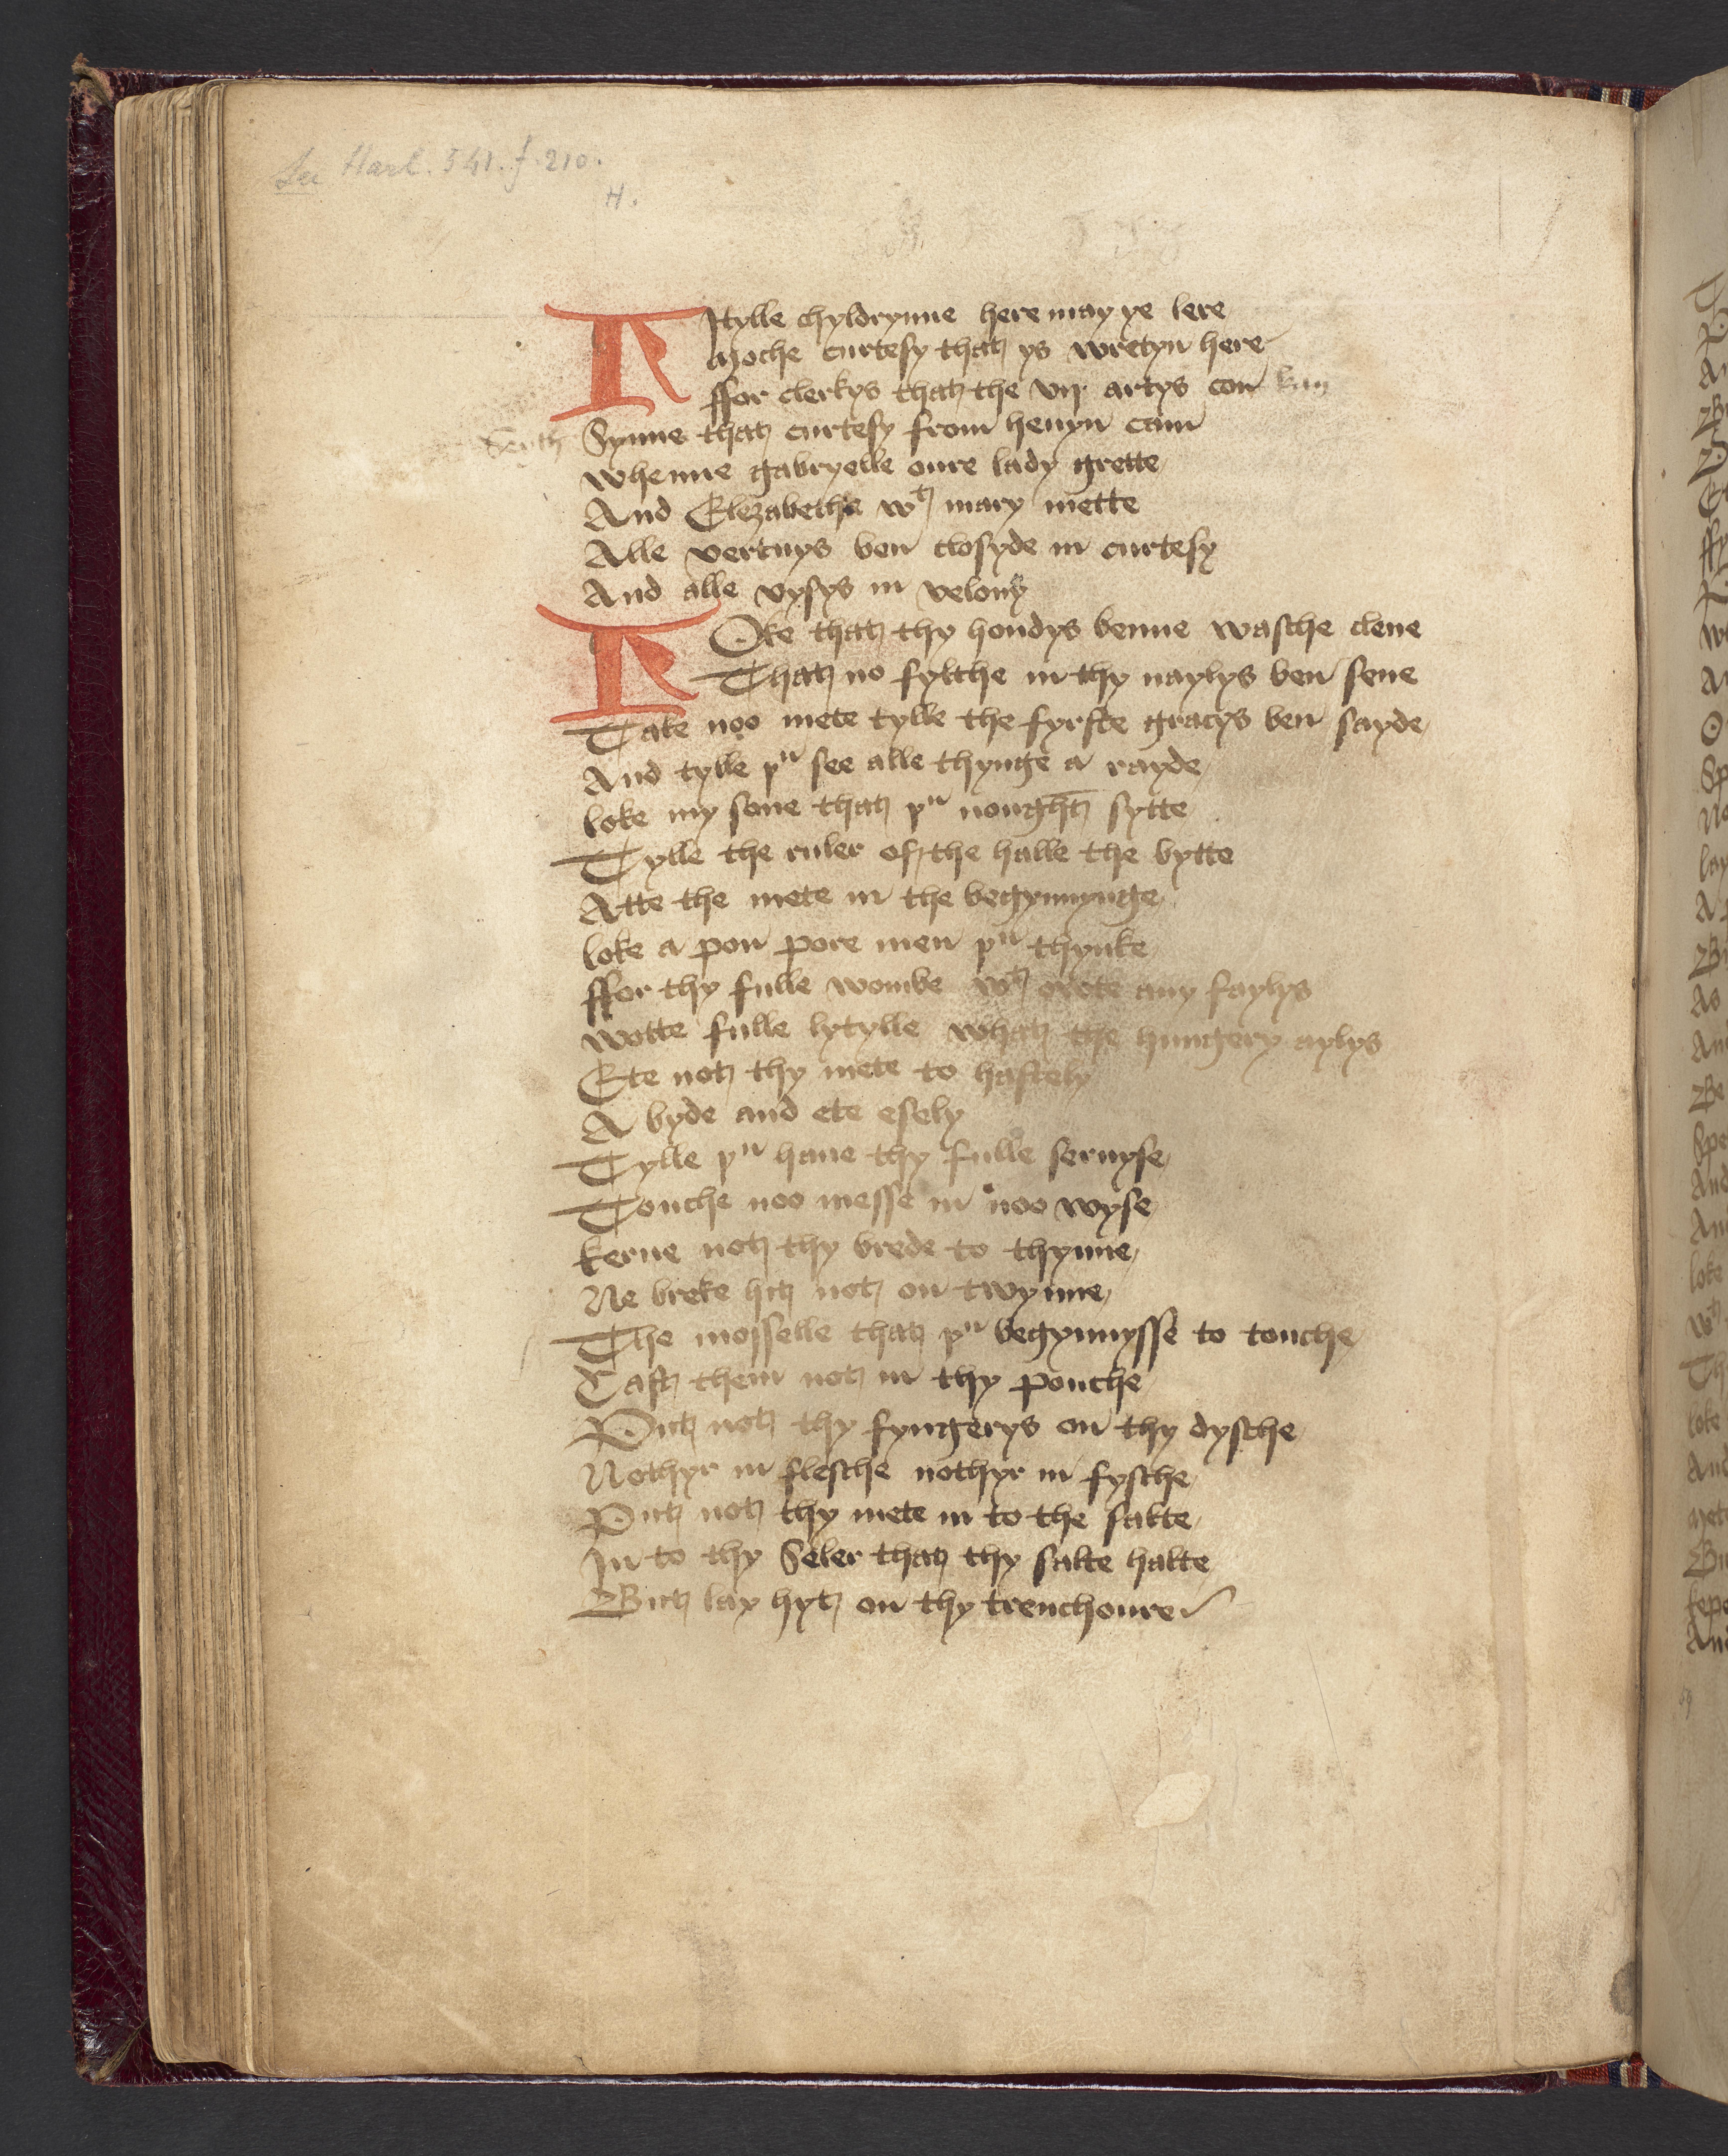 See Harl. 541. f. 210.
H.
Lytylle chyldrynne here may ye lere
Moche curtesy that ys wretyn here
ffor clerkys that the vij artys con kan
Seyth Synne that curtesy from hevyn cam
Whenne gabryelle oure lady grette
And Elezabethe wt mary mette
Alle vertuys ben closyde in curtesy
And alle vysys in velony
Loke that thy hondys benne wasche clene
That no fylthe in thy naylys ben sene
Take noo mete tylle the fyrste gracys ben sayde
And tylle þu see alle thynge a rayde
loke my sone that þu nought sytte
Tylle the ruler of the halle the bytte
Atte the mete in the begynnynge
loke a pon pore men þu thynke
ffor thy fulle wombe wt owte any faylys
Wotte fulle lytylle what the hungery aylys
Ete not thy mete to hastely
A byde and ete esely
Tylle þu haue thy fulle seruyse
Touche noo messe in noo wyse
kerue not thy brede to thynne
Ne breke hit not on twynne
The mosselle that þu begynnysse to touche
Cast them not in thy pouche
Put not thy fyngerys on thy dysche
Nothyr in flesche nothyr in fysche
Put not thy mete in to the salte
In to thy Seler that thy salte halte
But lay hyt on thy trenchoure